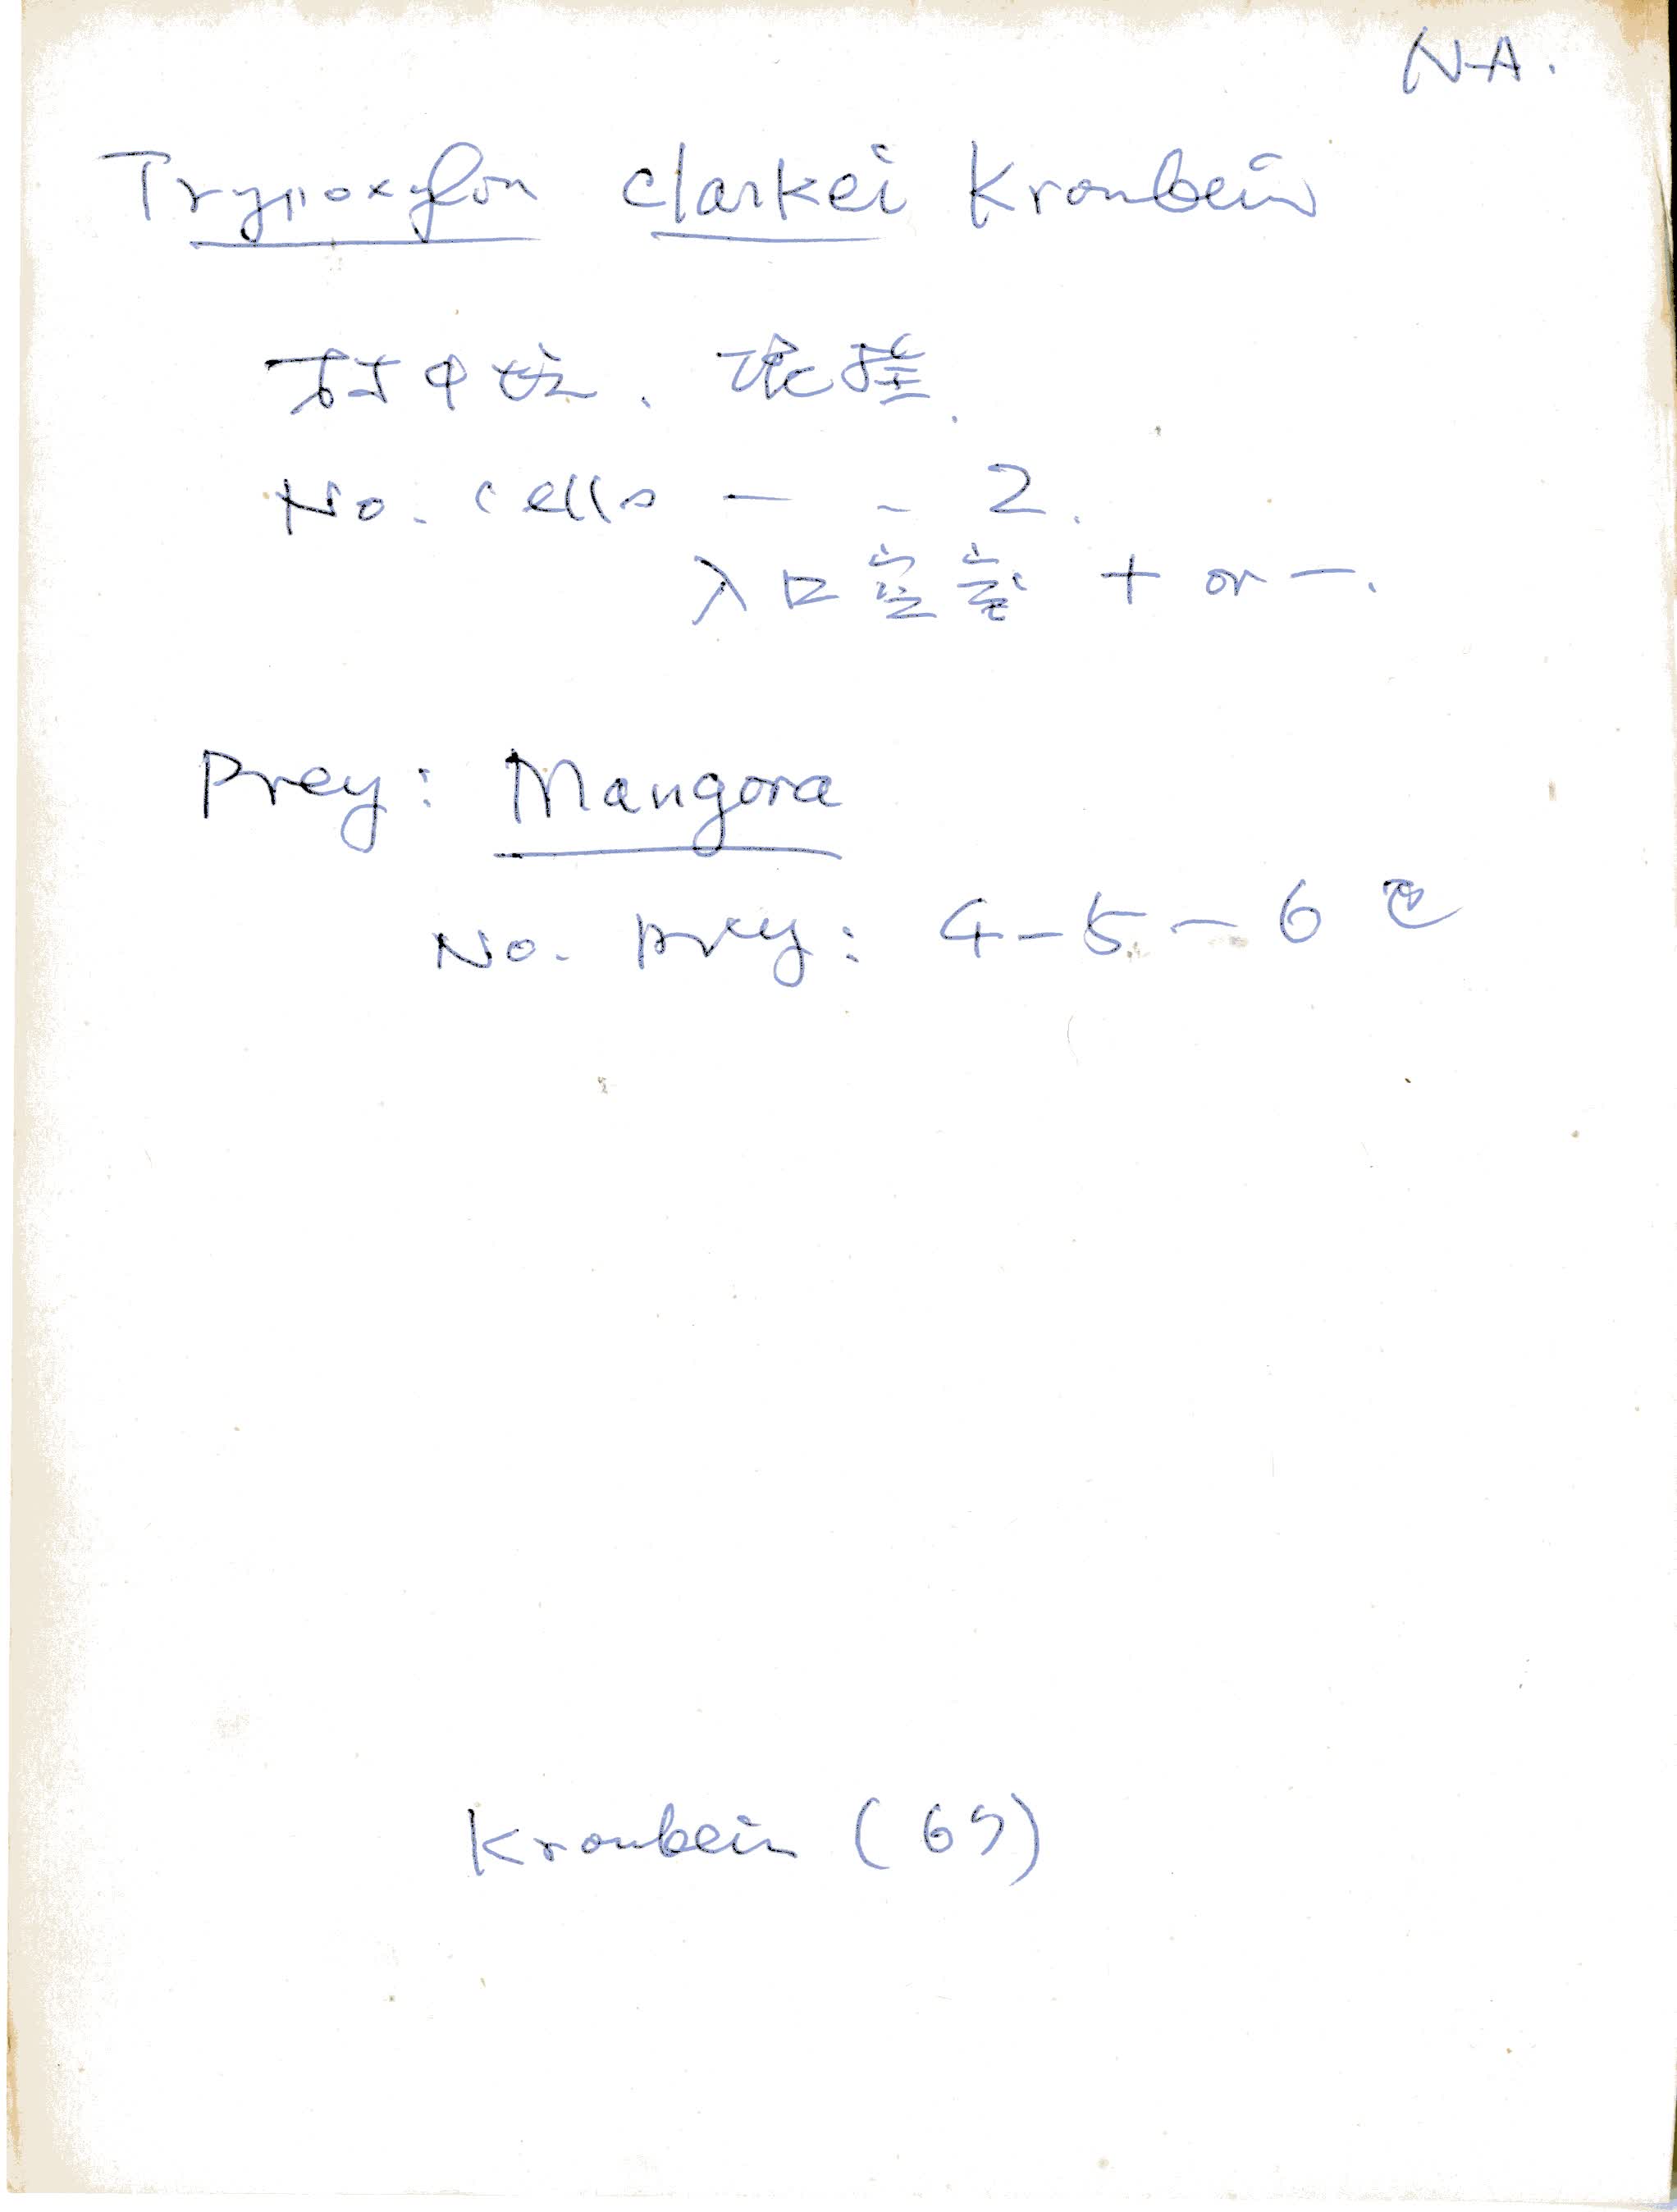 N.A.
Trypoxylon clarkei Krombein
材中坑、泥壁.
No. cells — ~ 2.
入口空室 + or —.
Prey: Mangora
No. prey: 4-5-6
Krombein (67)